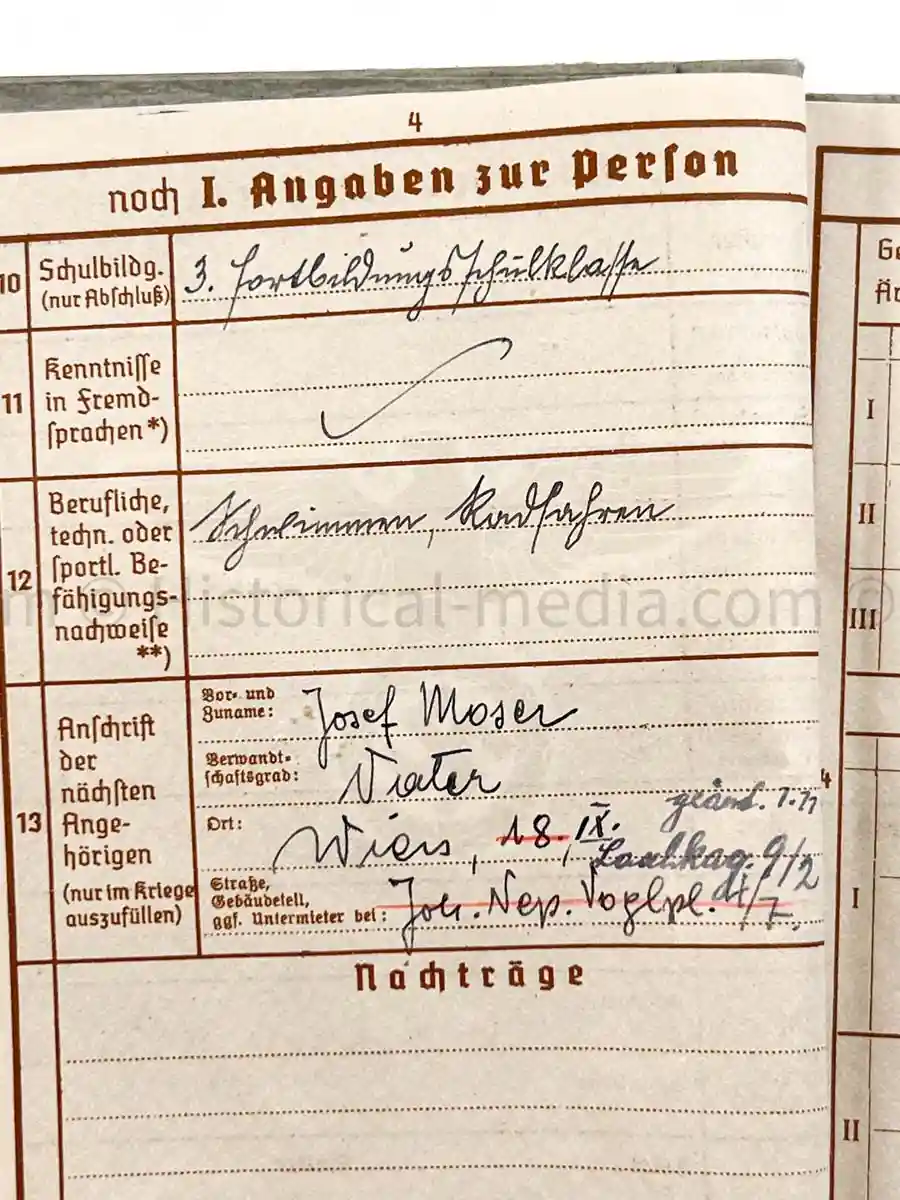 4
noch I. Angaben zur Person
10 Schulbildg. (nur Abschluß) 3. Fortbildungsschulklasse
11 Kenntnisse in Fremd-
sprachen *)
12 Berufliche, Schwimmen, Radfahren
techn. oder
sportl. Be-
fähigungs-
nachweise
**)
13 Anschrift
der
nächsten
Ange-
hörigen
(nur im Kriege
auszufüllen)
Vor- und
Zuname: Josef Moser
Verwandt-
schaftsgrad: Vater
geänd.
Ort: Wien, 18. IX. 9/2
Straße,
Gebäudeteil,
ggf. Untermieter bei: Joh. Nep. Voglpl. 4/7.
Nachträge
4
Ge
I
II
III
I
II
© Historical-media.com ©